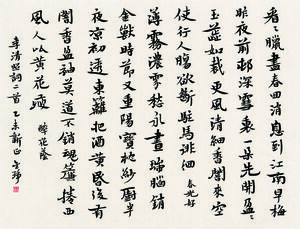 看々臘盡春回消息到江南早梅
昨夜前村深雪裏一朵先開盈々
玉蕊如裁更風清細香闇來空
使行人腸欲斷駐馬徘徊 春光好
薄霧濃雰愁永晝瑞腦銷
金獸時節又重陽寶枕紗厨半
夜凉初透東籬把酒黄昏後有
闇香盈袖莫道不銷魂簾捲西
風人似黄花瘦 醉花蔭
李清照詞二首 乙未新正